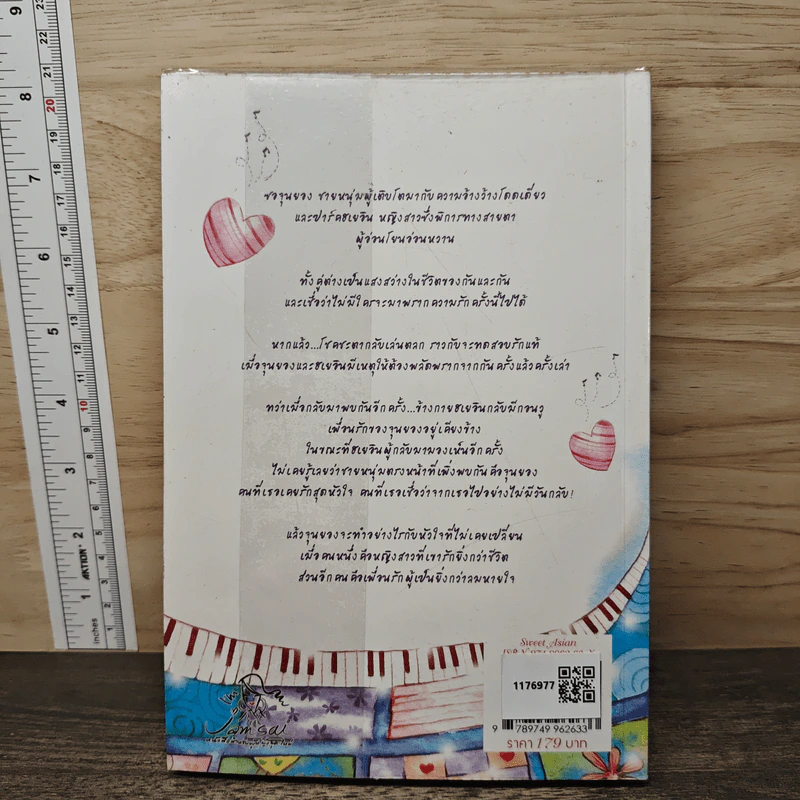 ซอจุนยอง ชายหนุ่มผู้เติบโตมากับความอ้างว้างโดดเดี่ยว
และปาร์คฮเยอิน หญิงสาวซึ่งพิการทางสายตา
ผู้อ่อนโยนอ่อนหวาน
ทั้งคู่ต่างเป็นแสงสว่างในชีวิตของกันและกัน
และเชื่อว่าไม่มีใครจะมาพรากความรักครั้งนี้ไปได้
หากแล้ว...โชคชะตากลับเล่นตลก ราวกับจะทดสอบรักแท้
เมื่อจุนยองและฮเยอินมีเหตุให้ต้องพลัดพรากจากกันครั้งแล้วครั้งเล่า
ทว่าเมื่อกลับมาพบกันอีกครั้ง...ข้างกายฮเยอินกลับมีกอนวู
เพื่อนรักของจุนยองอยู่เคียงข้าง
ในขณะที่ฮเยอินผู้กลับมามองเห็นอีกครั้ง
ไม่เคยรู้เลยว่าชายหนุ่มตรงหน้าที่เพิ่งพบกันคือจุนยอง
คนที่เธอเคยรักสุดหัวใจ คนที่เธอเชื่อว่าจากเธอไปอย่างไม่มีวันกลับ!
แล้วจุนยองจะทำอย่างไรกับหัวใจที่ไม่เคยเปลี่ยน
เมื่อคนหนึ่งคือหญิงสาวที่เขารักยิ่งกว่าชีวิต
ส่วนอีกคนคือเพื่อนรักผู้เป็นยิ่งกว่าลมหายใจ
Sweet Asian
1176977
9 789749 962633
ราคา 179 บาท
Jamsai
inches
ACTION
1 2 3 4 5 6 7 8 9
10 20 21 22 23